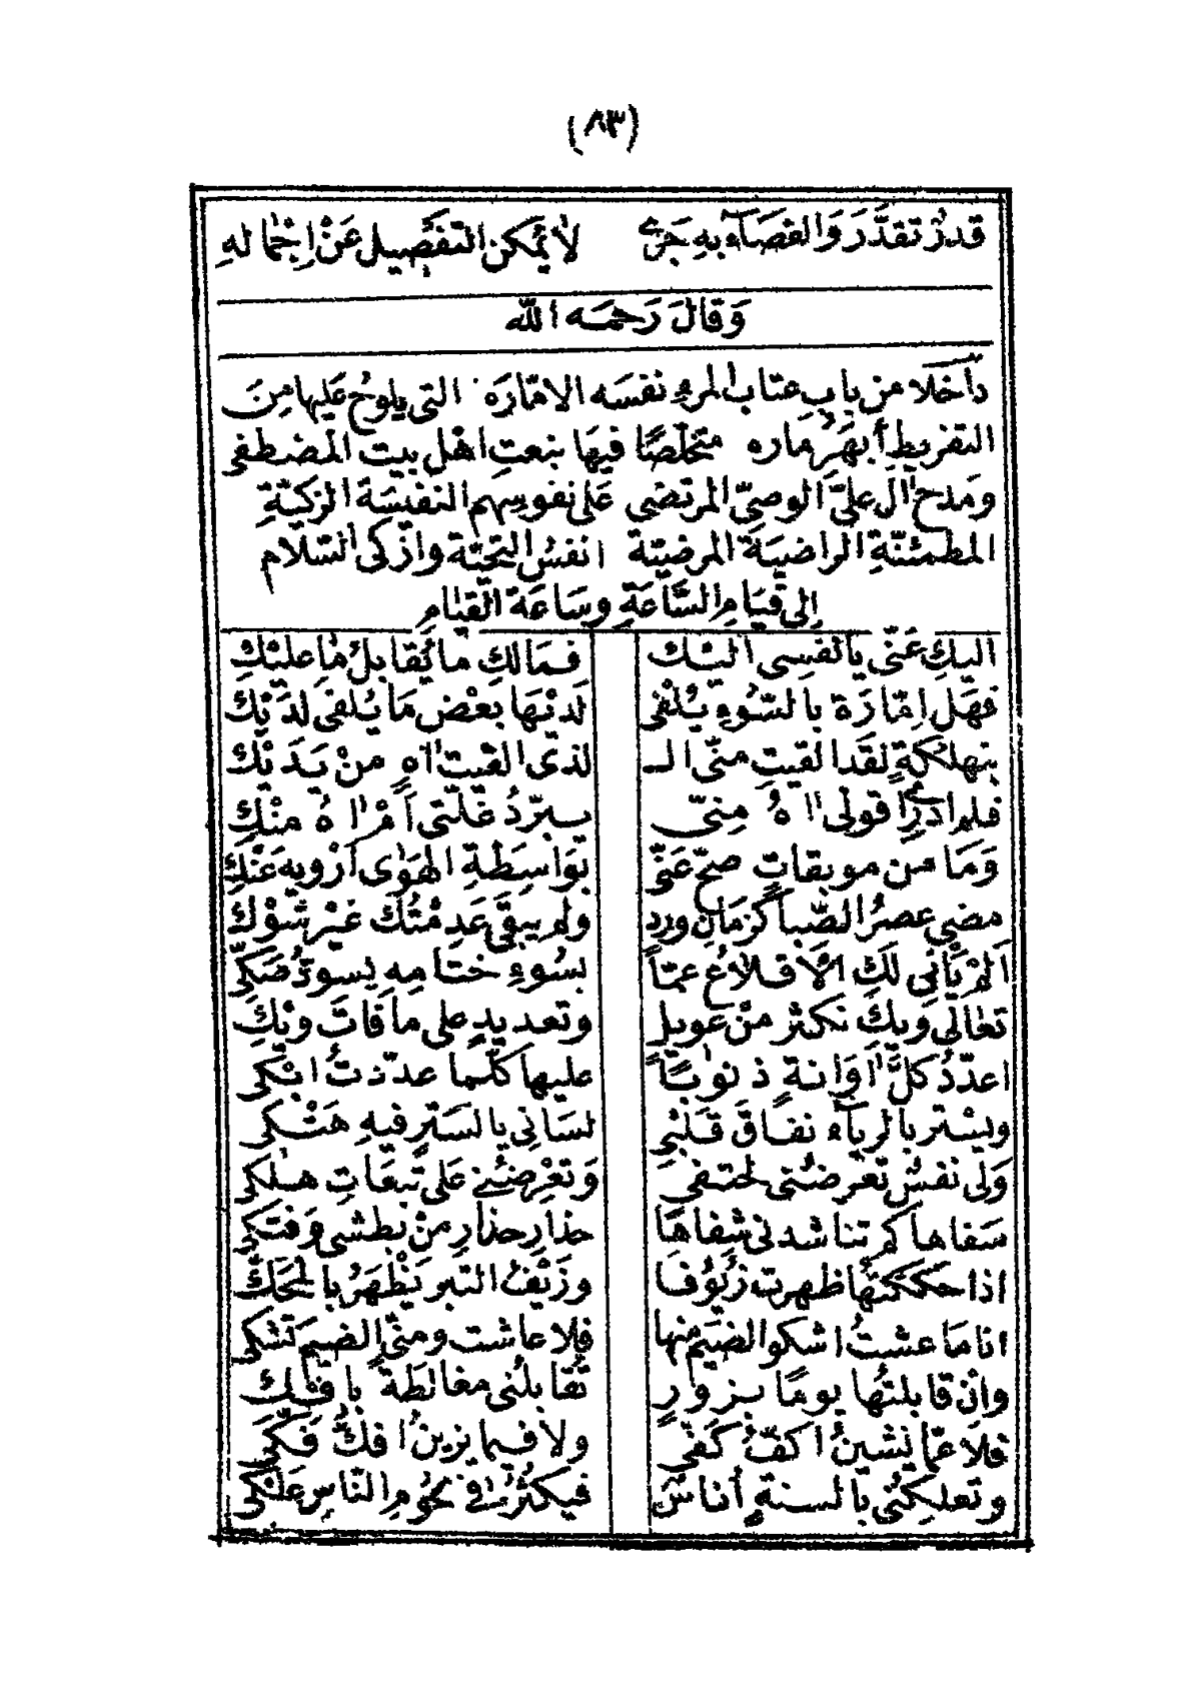 (٨٣)
قدرٌ تقدَّرَ وَالقضآء بِهِ جَرٰى لا يُمكن التفصيل عَنْ اِجْمالهِ
وَقالَ رَحمَه الله
داخلا من باب عتاب المرء نفسَه الامّارَة التى يلوح عَليها مِنَ
التفريط أبهَر مَاره متخلّصًا فيهَا بنعتِ اهْل بيت المصْطفى
ومَدح اٰل عَليّ الوصيّ المرتضى عَلى نفوسِهم النفيسَة الزكيّةِ
المطمئنّةِ الراضيَة المرضيّة انفسُ التحيّة وازكى السّلام
اِلى قيَامِ السَّاعَةِ وسَاعَة القيامِ
اليكِ عَنّى يا نفسِى اليْك فمَالكِ ما يُقابلُ مَا عليْكِ
فهَل امّارَة بالسّوءِ يُلْفى لدَيْهَا بَعْض مَا يُلفى لدَيْك
بتهلكةٍ لقَد القيتِ منّى الـ لذى القيت اٰهٍ منْ يَدَيْك
فلم ادرِ أقولى اٰهُ مِنّى يبرّدُ غلّتى أمْ اٰهُ منْكِ
وَمَا من موبقاتٍ صحّ عَنّى بوَاسِطةِ الهَوٰى أرْويه عَنْكِ
مضى عصرُ الصّبا كزمَانِ وردٍ ولم يبقى عَدِمْتُك غيْر شَوْك
المْ يَأْنِى لَكِ الْاقلاعُ عمّا بسُوءِ ختامهِ يسودّ صَكّى
تعَالَى ويكَ نكثر منْ عويل وتعديدٍ على ما فاتَ ويْكِ
اعدّدُ كلَّ اٰوَانةٍ ذنوبًا عليها كلّما عدّدتُ ابْكى
ويسْتر بالريآء نفاقَ قلْبى لسَانِى بالسَترِ فيهِ هَتْكى
وَلى نفسٌ تعرضنى لحتفى وَتعْرِضُنى عَلى تبعَاتِ هلكى
سَفاهاً كم تناشدنى شفاهَا حذارِ حذارِ منْ بطشى وَفتكى
اذا حككتهَا ظهرت زُيُوفًا وزَيْفُ التبر يَظْهَرُ بالمحَكّ
انا مَا عشتُ اشكو الضيْم منها فلا عاشت ومنّى الضيمَ تشكى
وانْ قابلتُها يومًا بزورٍ تُقابلُنى مغالطَة بافْكِ
فلا عمّا يُشينُ اكفّ كَفّى ولا فيما يزينُ افكُّ فَكّى
وتعلكنى بالسنةِ أناسٌ فيكثرُ فى لحُومِ النّاسِ عَلكى